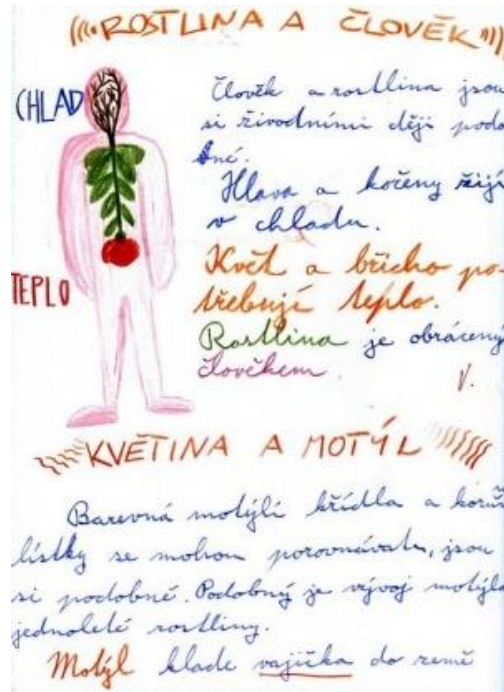 ROSTLINA A ČLOVĚK
CHLAD
Člověk a rostlina jsou
si životními ději podo
bné.
Hlava a kořeny žijí
v chladu.
Květ a břicho po-
třebují teplo.
TEPLO
Rostlina je obráceným
člověkem.
V.
KVĚTINA A MOTÝL
Barevná motýlí křídla a korun
lístky se mohou porovnávati, jsou
si podobné. Podobný je vývoj motýla
jednoleté rostliny.
Motýl klade vajíčka do země